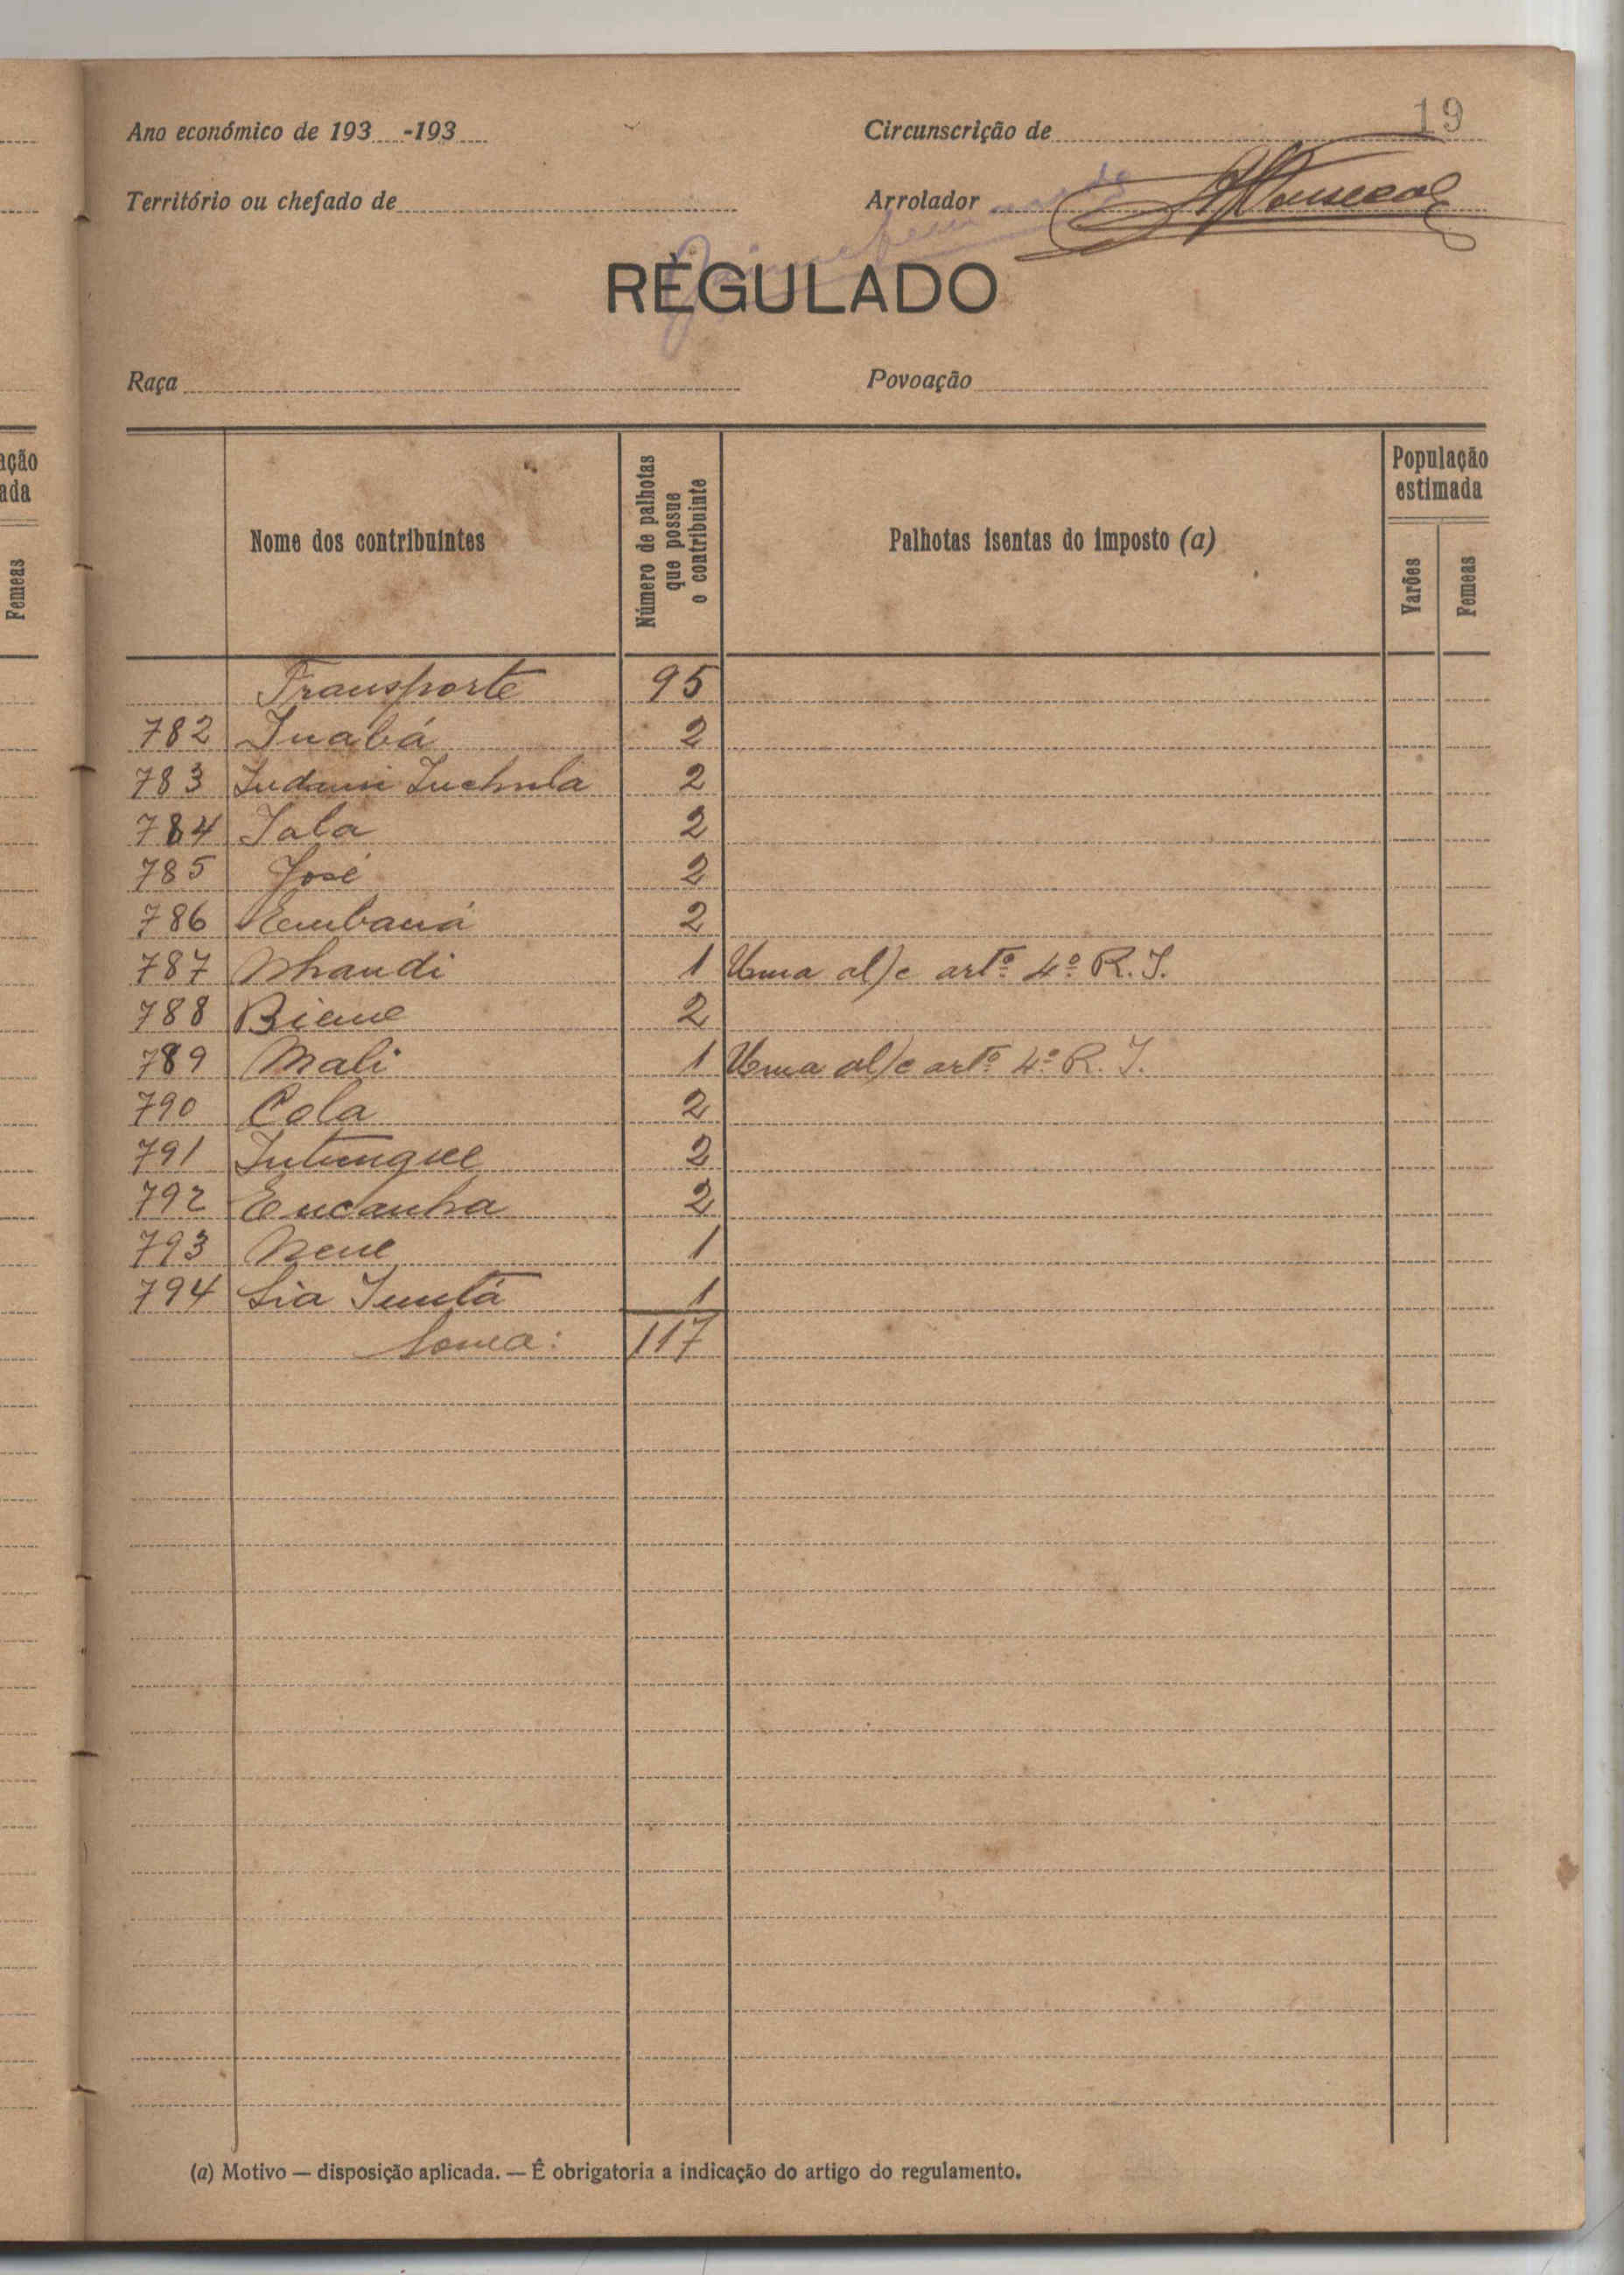 19
Ano económico de 193 -193
Circunscrição de
Território ou chefado de
Arrolador
REGULADO
Raça
Povoação
ação
ada
Femeas
Nome dos contribuintes
Número de palhotas que possue o contribuinte
Palhotas isentas do imposto (a)
População estimada
Varões
Femeas
Transporte 95
782 Inabá 2
783 2
784 Iala 2
785 José 2
786 2
787 Nhandi 1 Uma al/c artº 4º R. I.
788 Biene 2
789 Mali 1 Uma al/c artº 4º R. I.
790 Cola 2
791 Intungue 2
792 Encanha 2
793 Nene 1
794 Sia 1
Soma: 117
(a) Motivo — disposição aplicada. — É obrigatoria a indicação do artigo do regulamento.